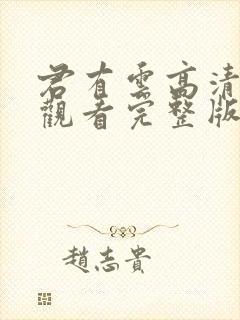 君有雲高清
觀看完整版
趙志貴